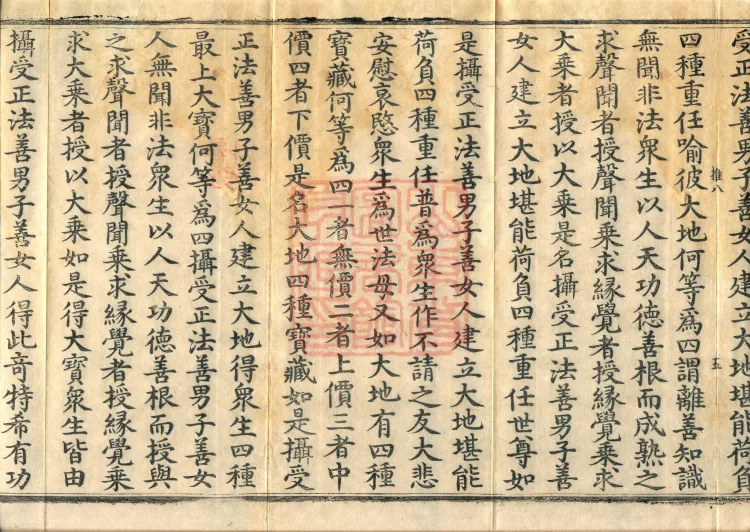 受正法善男子善女人建立大地堪能荷負
推八
五
四種重任喻彼大地何等為四謂離善知識
無聞非法衆生以人天功德善根而成熟之
求聲聞者授聲聞乗求緣覺者授緣覺乗求
大乗者授以大乗是名攝受正法善男子善
女人建立大地堪能荷負四種重任世尊如
是攝受正法善男子善女人建立大地堪能
荷負四種重任普爲衆生作不請之友大悲
安慰哀愍衆生爲世法母又如大地有四種
寳藏何等爲四一者無價二者上價三者中
價四者下價是名大地四種寳藏如是攝受
正法善男子善女人建立大地得衆生四種
最上大寳何等爲四攝受正法善男子善女
人無聞非法衆生以人天功德善根而授與
之求聲聞者授聲聞乗求緣覺者授緣覺乗
求大乗者授以大乗如是得大寳衆生皆由
攝受正法善男子善女人得此竒特希有功